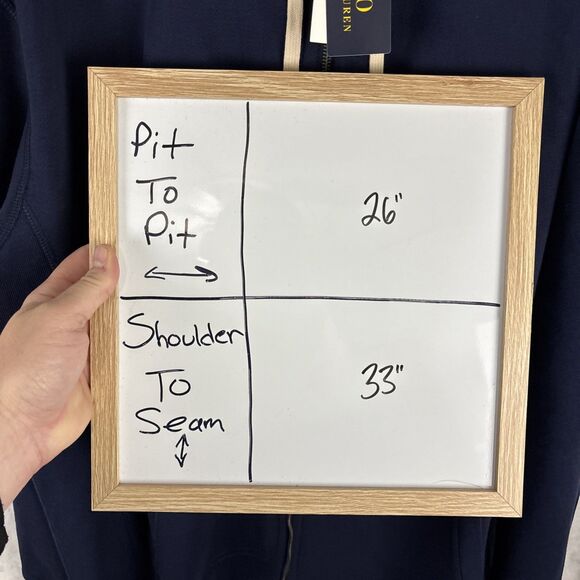 O
UREN
Pit
To
Pit
26"
Shoulder
To
Seam
33"